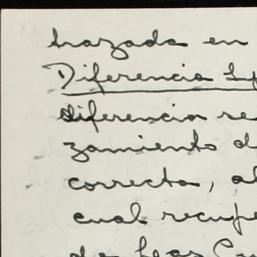 hazada en
Diferencia Ly
diferencia re
zamiento d
correcta, al
cual recupe